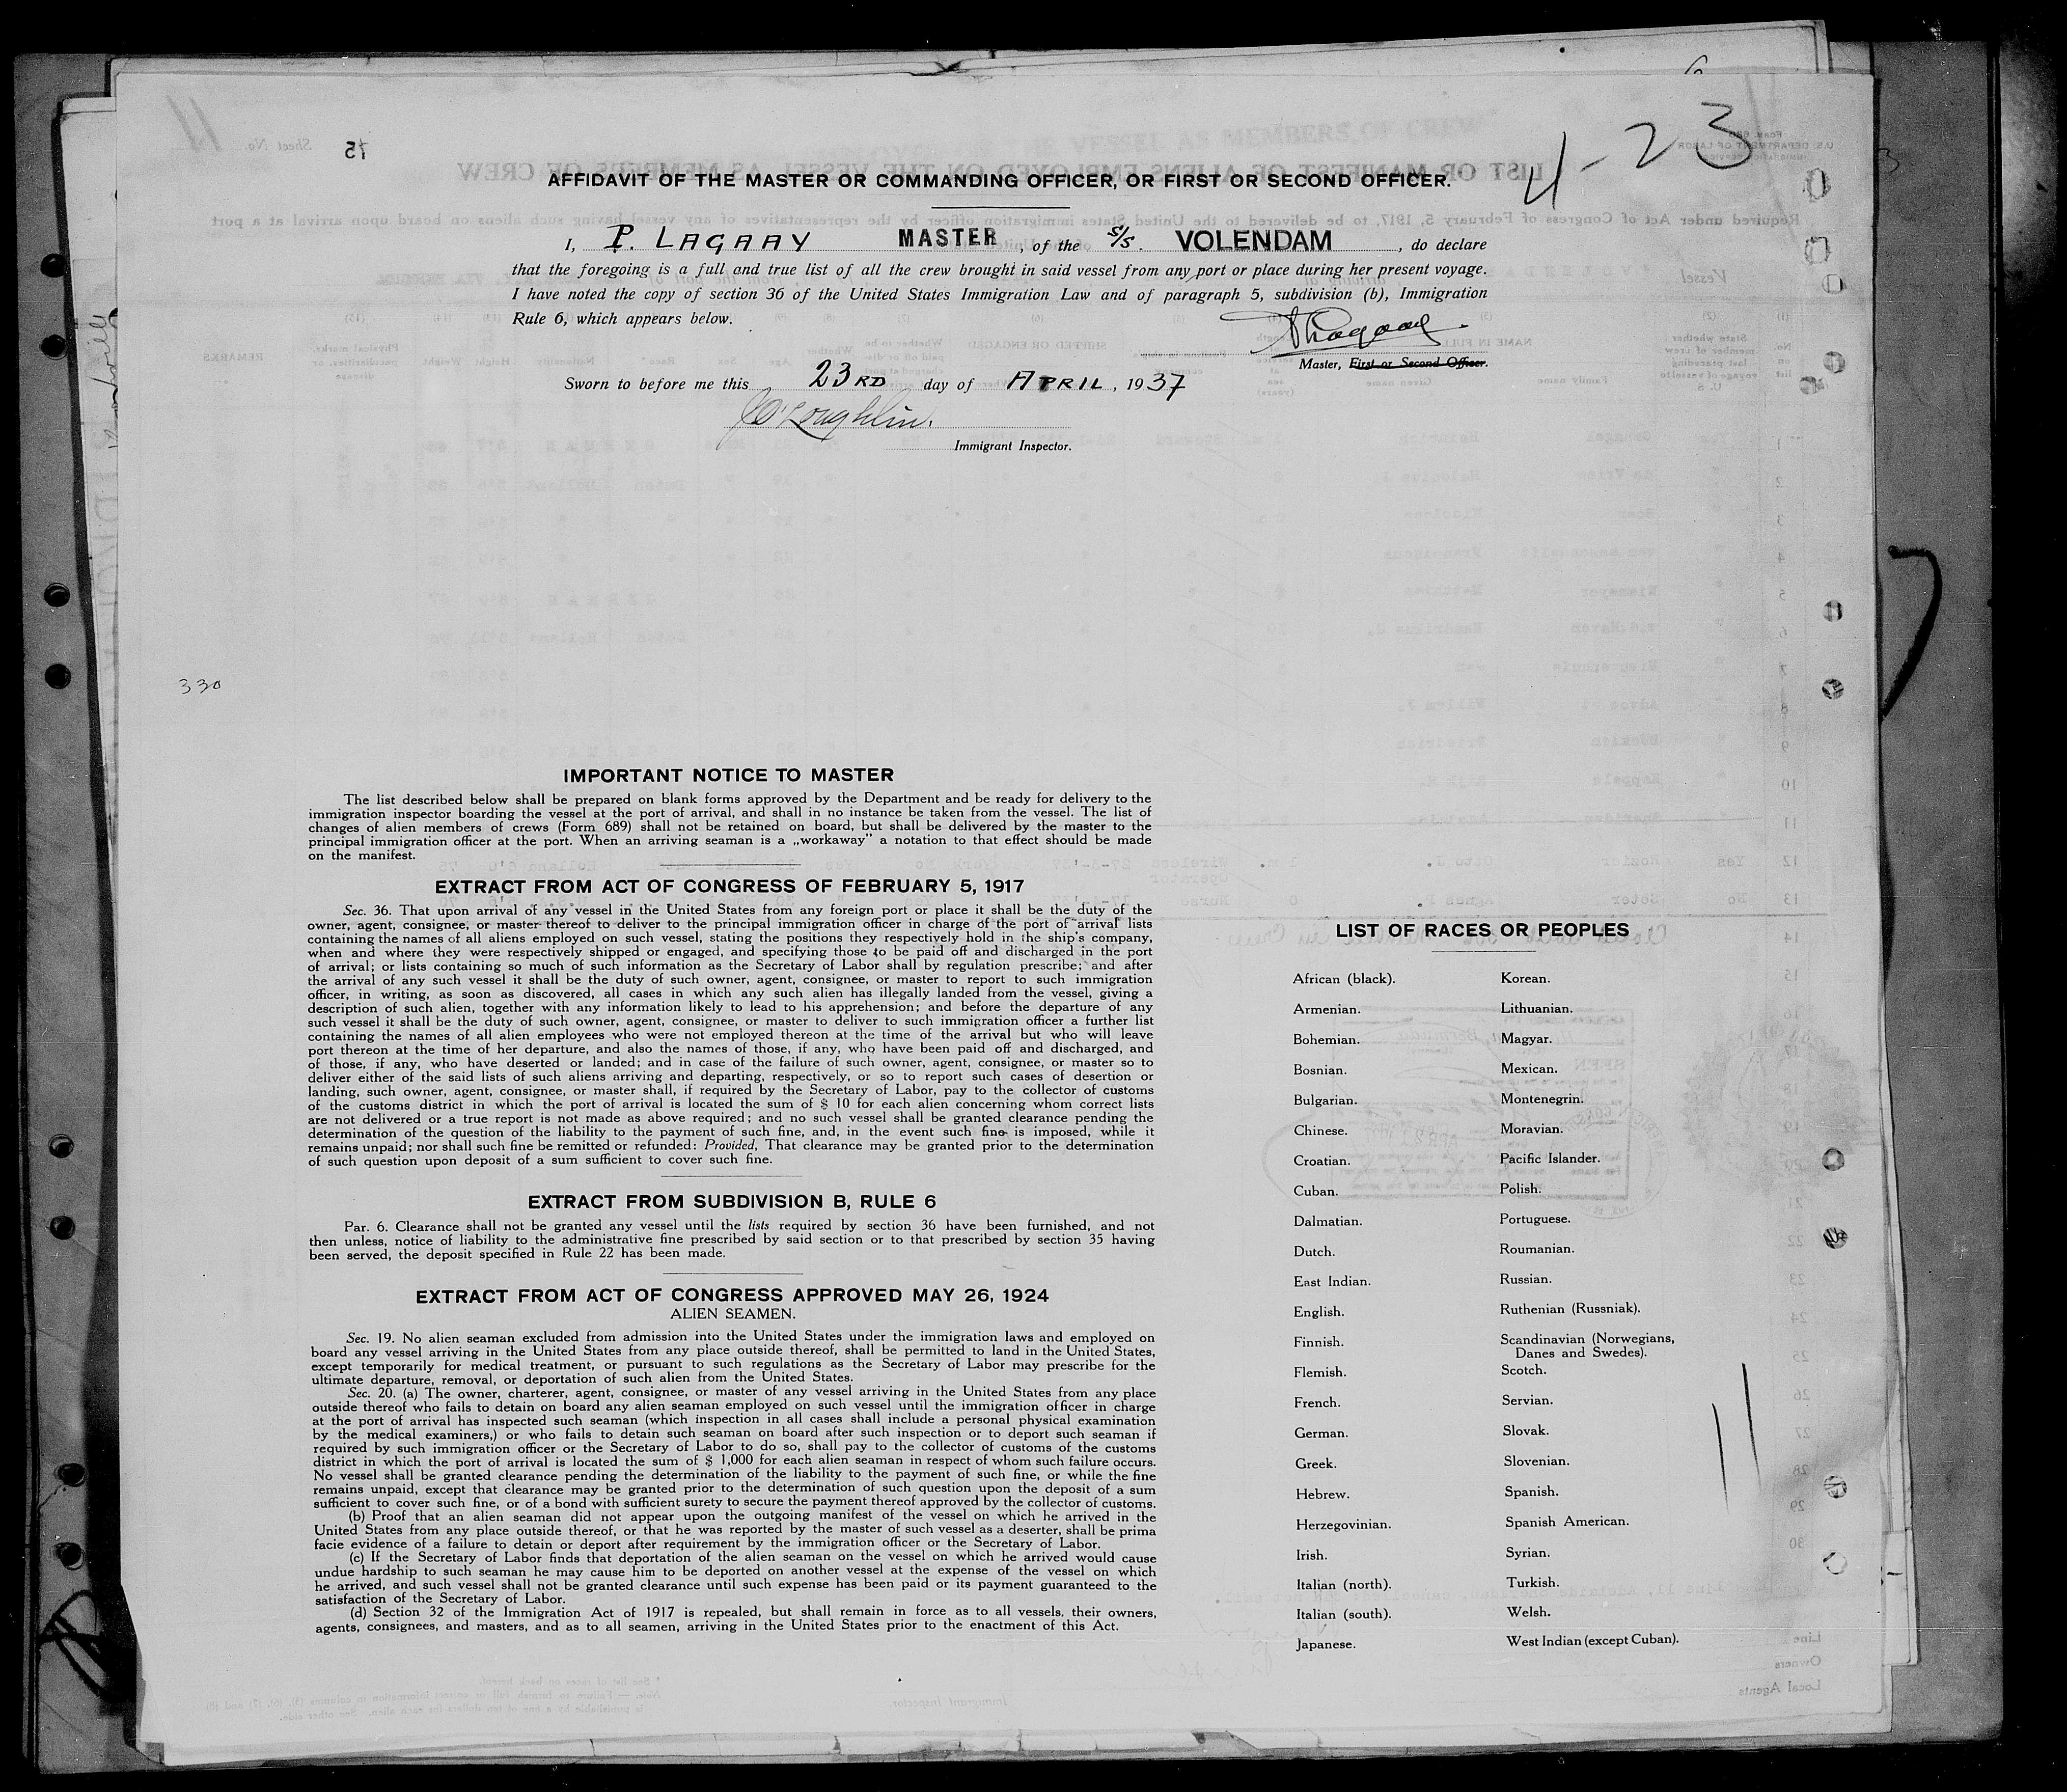 4-23
AFFIDAVIT OF THE MASTER OR COMMANDING OFFICER, OR FIRST OR SECOND OFFICER.
I, P. LAGAAY MASTER, of the S/S. VOLENDAM, do declare
that the foregoing is a full and true list of all the crew brought in said vessel from any port or place during her present voyage.
I have noted the copy of section 36 of the United States Immigration Law and of paragraph 5, subdivision (b), Immigration
Rule 6, which appears below.
Master, First or Second Officer.
Sworn to before me this 23RD day of APRIL, 1937
O'Loughlin.
Immigrant Inspector.
330
IMPORTANT NOTICE TO MASTER
The list described below shall be prepared on blank forms approved by the Department and be ready for delivery to the
immigration inspector boarding the vessel at the port of arrival, and shall in no instance be taken from the vessel. The list of
changes of alien members of crews (Form 689) shall not be retained on board, but shall be delivered by the master to the
principal immigration officer at the port. When an arriving seaman is a „workaway" a notation to that effect should be made
on the manifest.
EXTRACT FROM ACT OF CONGRESS OF FEBRUARY 5, 1917
Sec. 36. That upon arrival of any vessel in the United States from any foreign port or place it shall be the duty of the
owner, agent, consignee, or master thereof to deliver to the principal immigration officer in charge of the port of arrival lists
containing the names of all aliens employed on such vessel, stating the positions they respectively hold in the ship's company,
when and where they were respectively shipped or engaged, and specifying those to be paid off and discharged in the port
of arrival; or lists containing so much of such information as the Secretary of Labor shall by regulation prescribe; and after
the arrival of any such vessel it shall be the duty of such owner, agent, consignee, or master to report to such immigration
officer, in writing, as soon as discovered, all cases in which any such alien has illegally landed from the vessel, giving a
description of such alien, together with any information likely to lead to his apprehension; and before the departure of any
such vessel it shall be the duty of such owner, agent, consignee, or master to deliver to such immigration officer a further list
containing the names of all alien employees who were not employed thereon at the time of the arrival but who will leave
port thereon at the time of her departure, and also the names of those, if any, who have been paid off and discharged, and
of those, if any, who have deserted or landed; and in case of the failure of such owner, agent, consignee, or master so to
deliver either of the said lists of such aliens arriving and departing, respectively, or so to report such cases of desertion or
landing, such owner, agent, consignee, or master shall, if required by the Secretary of Labor, pay to the collector of customs
of the customs district in which the port of arrival is located the sum of $ 10 for each alien concerning whom correct lists
are not delivered or a true report is not made as above required; and no such vessel shall be granted clearance pending the
determination of the question of the liability to the payment of such fine, and, in the event such fine is imposed, while it
remains unpaid; nor shall such fine be remitted or refunded: Provided, That clearance may be granted prior to the determination
of such question upon deposit of a sum sufficient to cover such fine.
EXTRACT FROM SUBDIVISION B, RULE 6
Par. 6. Clearance shall not be granted any vessel until the lists required by section 36 have been furnished, and not
then unless, notice of liability to the administrative fine prescribed by said section or to that prescribed by section 35 having
been served, the deposit specified in Rule 22 has been made.
EXTRACT FROM ACT OF CONGRESS APPROVED MAY 26, 1924
ALIEN SEAMEN.
Sec. 19. No alien seaman excluded from admission into the United States under the immigration laws and employed on
board any vessel arriving in the United States from any place outside thereof, shall be permitted to land in the United States,
except temporarily for medical treatment, or pursuant to such regulations as the Secretary of Labor may prescribe for the
ultimate departure, removal, or deportation of such alien from the United States.
Sec. 20. (a) The owner, charterer, agent, consignee, or master of any vessel arriving in the United States from any place
outside thereof who fails to detain on board any alien seaman employed on such vessel until the immigration officer in charge
at the port of arrival has inspected such seaman (which inspection in all cases shall include a personal physical examination
by the medical examiners,) or who fails to detain such seaman on board after such inspection or to deport such seaman if
required by such immigration officer or the Secretary of Labor to do so, shall pay to the collector of customs of the customs
district in which the port of arrival is located the sum of $ 1,000 for each alien seaman in respect of whom such failure occurs.
No vessel shall be granted clearance pending the determination of the liability to the payment of such fine, or while the fine
remains unpaid, except that clearance may be granted prior to the determination of such question upon the deposit of a sum
sufficient to cover such fine, or of a bond with sufficient surety to secure the payment thereof approved by the collector of customs.
(b) Proof that an alien seaman did not appear upon the outgoing manifest of the vessel on which he arrived in the
United States from any place outside thereof, or that he was reported by the master of such vessel as a deserter, shall be prima
facie evidence of a failure to detain or deport after requirement by the immigration officer or the Secretary of Labor.
(c) If the Secretary of Labor finds that deportation of the alien seaman on the vessel on which he arrived would cause
undue hardship to such seaman he may cause him to be deported on another vessel at the expense of the vessel on which
he arrived, and such vessel shall not be granted clearance until such expense has been paid or its payment guaranteed to the
satisfaction of the Secretary of Labor.
(d) Section 32 of the Immigration Act of 1917 is repealed, but shall remain in force as to all vessels, their owners,
agents, consignees, and masters, and as to all seamen, arriving in the United States prior to the enactment of this Act.
LIST OF RACES OR PEOPLES
African (black).
Armenian.
Bohemian.
Bosnian.
Bulgarian.
Chinese.
Croatian.
Cuban.
Dalmatian.
Dutch.
East Indian.
English.
Finnish.
Flemish.
French.
German.
Greek.
Hebrew.
Herzegovinian.
Irish.
Italian (north).
Italian (south).
Japanese.
Korean.
Lithuanian.
Magyar.
Mexican.
Montenegrin.
Moravian.
Pacific Islander.
Polish.
Portuguese.
Roumanian.
Russian.
Ruthenian (Russniak).
Scandinavian (Norwegians,
Danes and Swedes).
Scotch.
Servian.
Slovak.
Slovenian.
Spanish.
Spanish American.
Syrian.
Turkish.
Welsh.
West Indian (except Cuban).